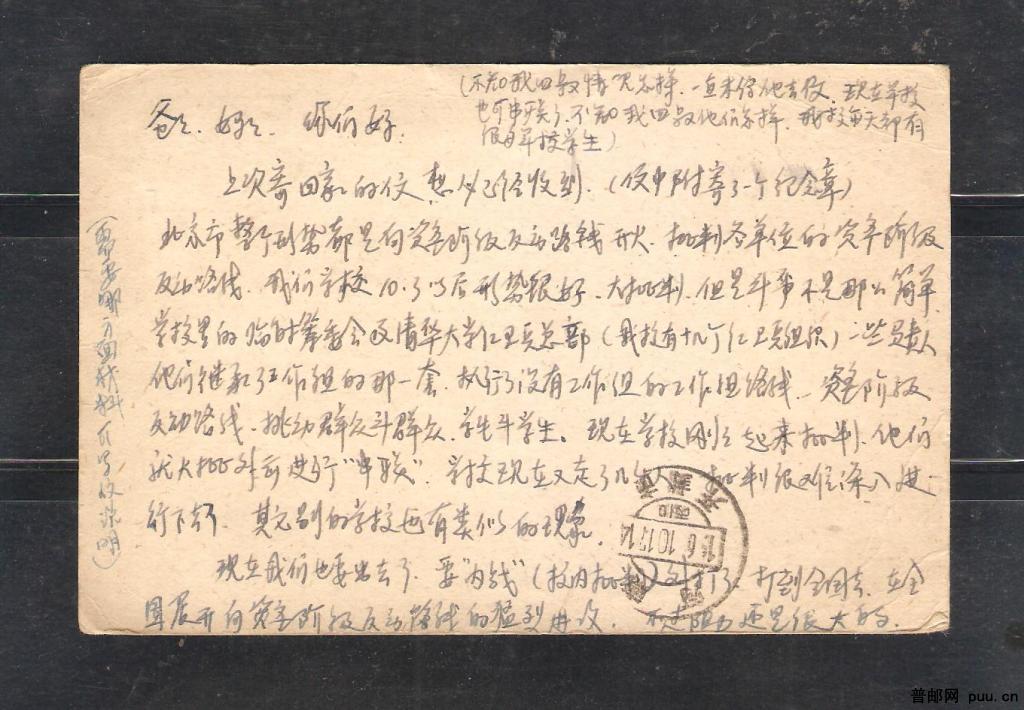 (不知我四叔情况怎样,一直未给他去信,现在军校
也可串联了,不知我四叔他们怎样,我校每天都有
很多军校学生)
爸爸、妈妈 你们好.
上次寄回家的信想必已经收到.(信中附寄了一个纪念章)
北京市整个形势都是向资产阶级反动路线开火,批判各单位的资产阶级
反动路线.我们学校10.3以后形势很好,大批判,但是斗争不是那么简单
学校里的临时筹委会及清华大学红卫兵总部(我校有十几个红卫兵组织)一些负责人
他们继承了工作组的那一套,执行了没有工作组的工作组路线—资产阶级
反动路线,挑动群众斗群众,学生斗学生。现在学校刚刚起来批判,他们
就大批外出进行"串联",学校现在又走了几千人,批判很难深入进
行下去了,其它别的学校也有类似的现象.
现在我们也要出去了,要"内线"(校内批判) 打到全国去,在全
国展开向资产阶级反动路线的猛烈进攻,不过阻力还是很大的.
(需要哪方面材料可写信说明)
普邮网 puu.cn